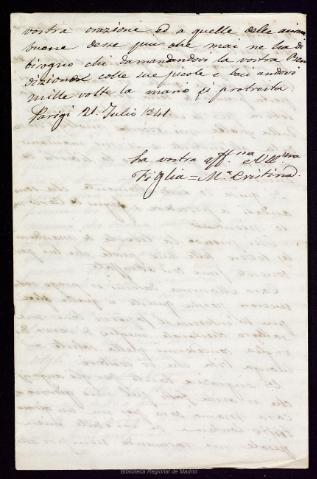 vostra orazione ed a quelle colle anime
buone dove piu che mai ne ha di
bisogno chi damandendovi la vostra Bene
dizione colle sue picole e baci andovi
mille volte la mano si protesta
Parigi 21. Julio 1841.
La vostra aff.ma
Figlia = M.a Cristina.
Biblioteca Regional de Madrid